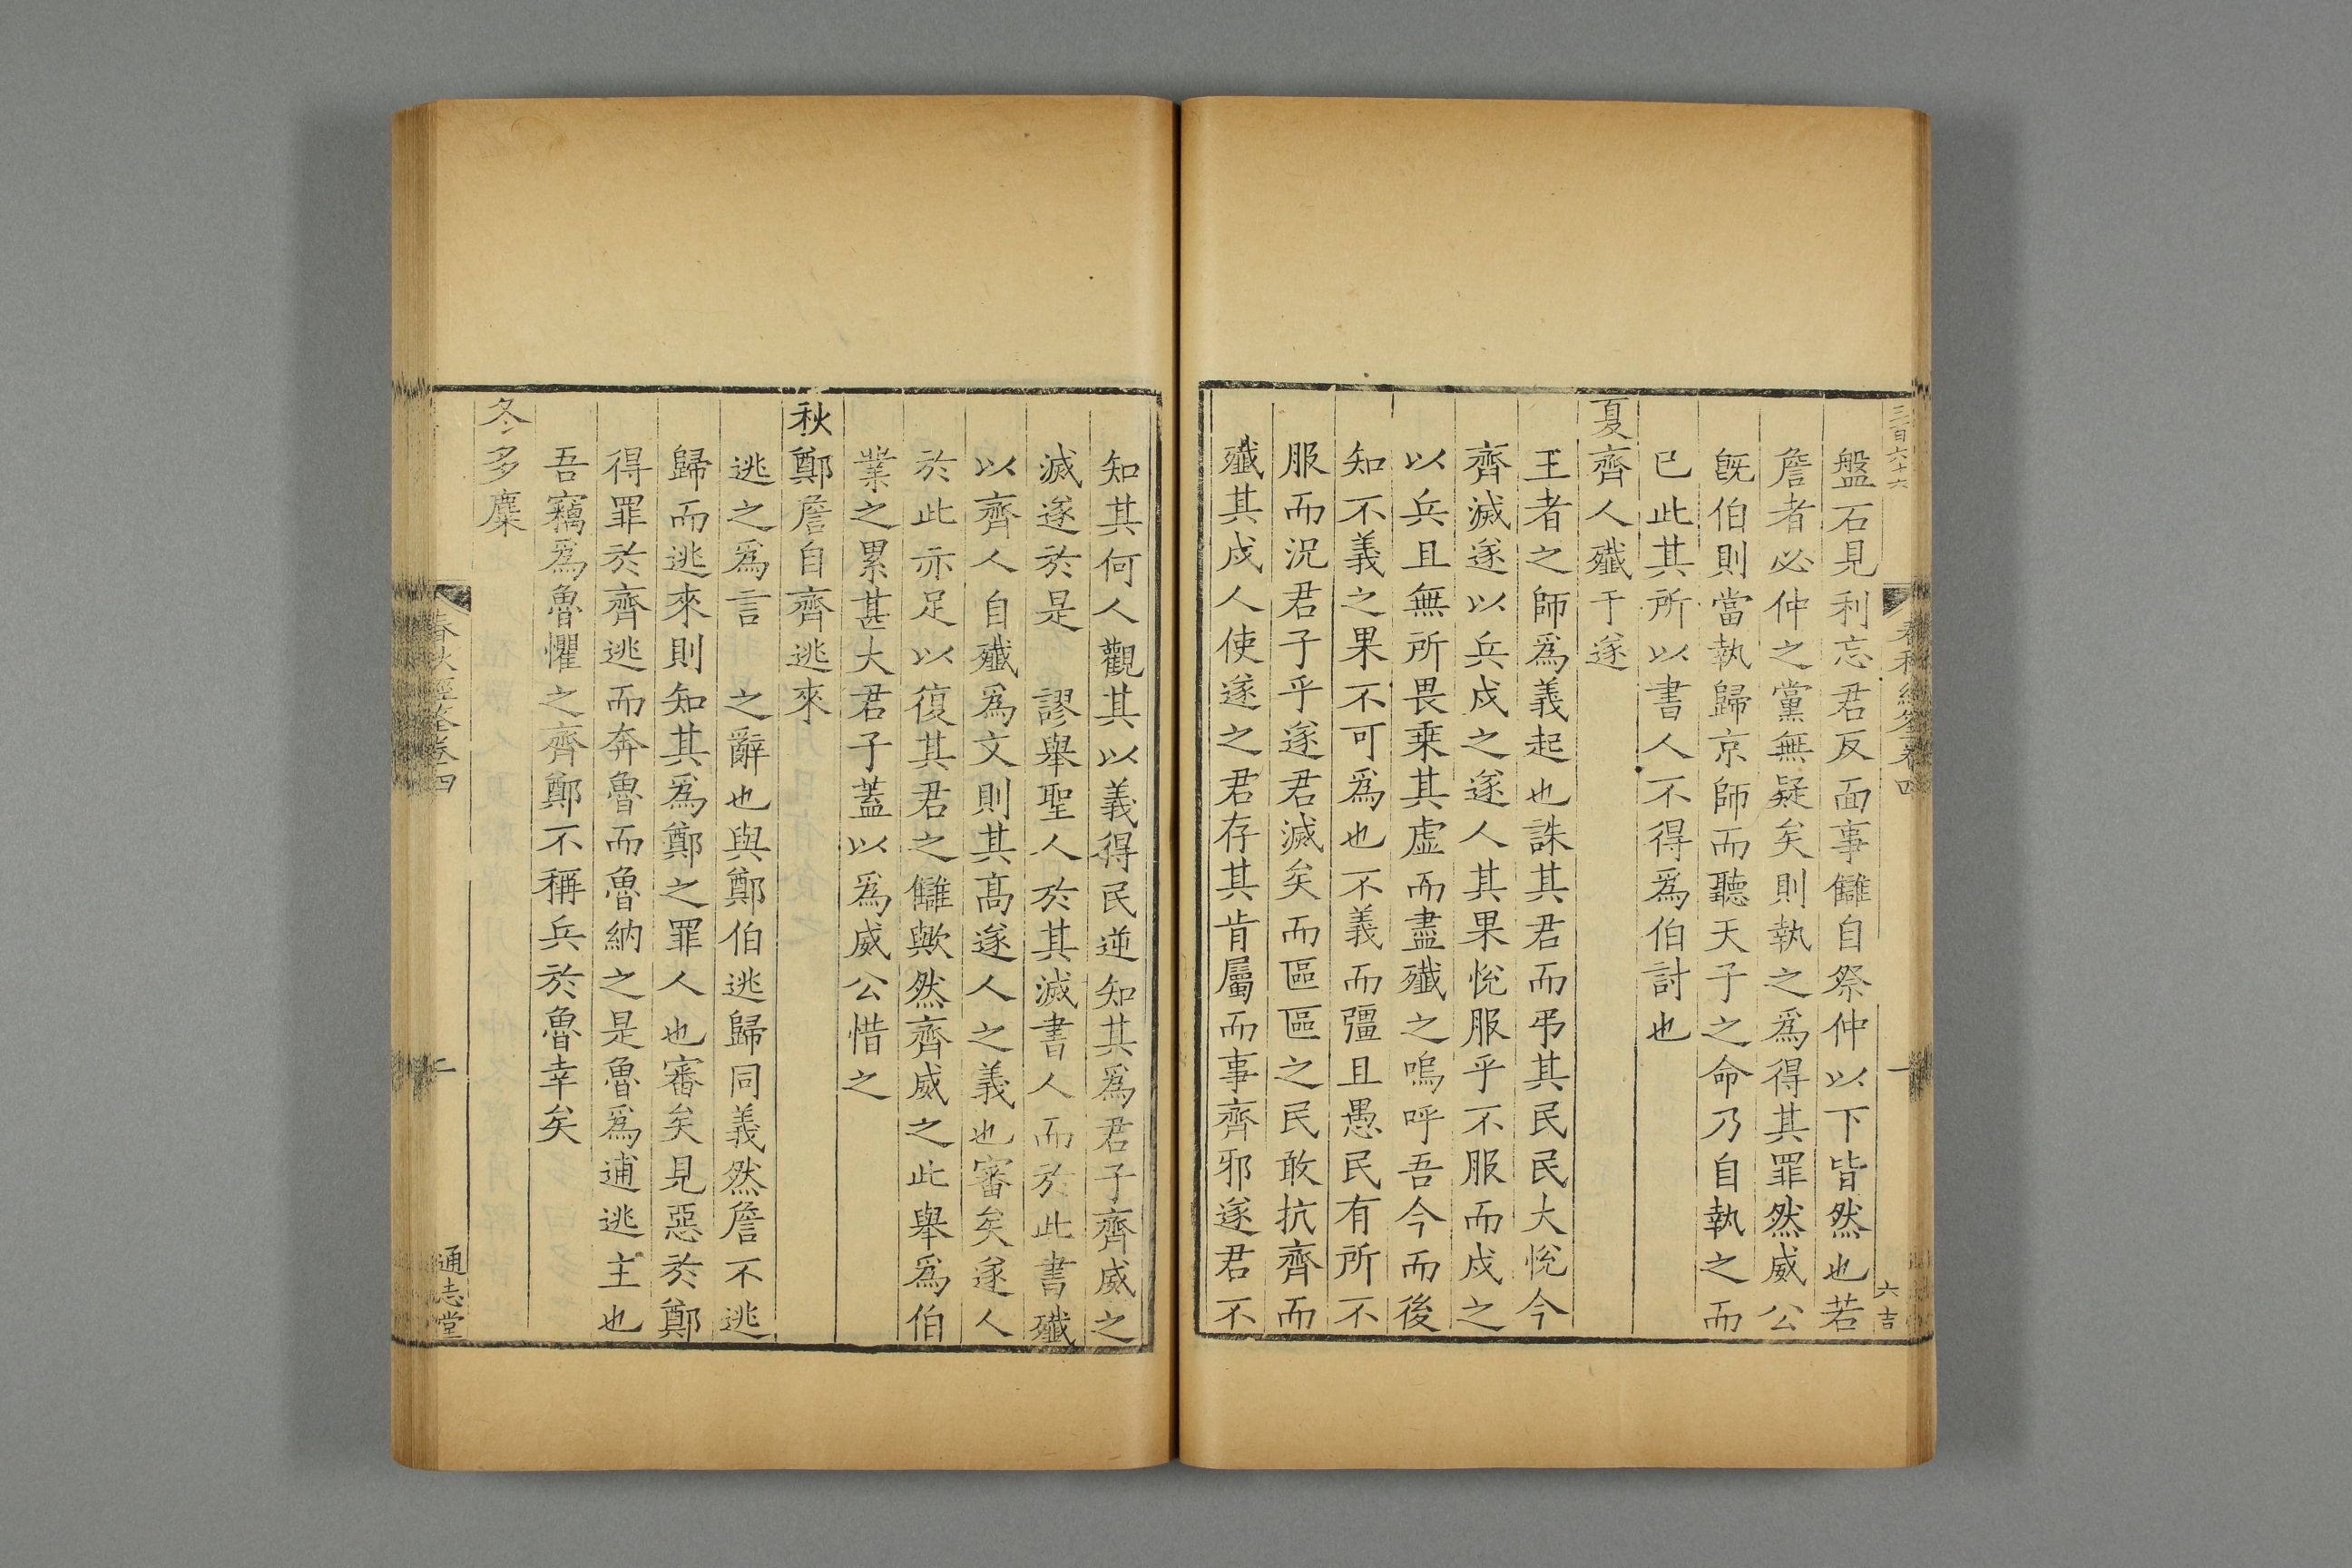 三百六十六
六吉
盤石見利忘君反面事讎自祭仲以下皆然也若
詹者必仲之黨無疑矣則執之為得其罪然威公
旣伯則當執歸京師而聽天子之命乃自執之而
已此其所以書人不得爲伯討也
夏齊人殲于遂
王者之師爲義起也誅其君而弔其民民大悅今
齊滅遂以兵戍之遂人其果悅服乎不服而戍之
以兵且無所畏乗其虛而盡殲之嗚呼吾今而後
知不義之果不可爲也不義而彊且愚民有所不
服而況君子乎遂君滅矣而區區之民敢抗齊而
殲其戍人使遂之君存其肯屬而事齊邪遂君不
知其何人觀其以義得民逆知其爲君子齊威之
滅遂於是 謬舉聖人於其滅書人而於此書殲
以齊人自殲爲文則其高遂人之義也審矣遂人
於此亦足以復其君之讎歟然齊威之此舉爲伯
業之累甚大君子蓋以爲威公惜之
秋鄭詹自齊逃來
逃之爲言 之辭也與鄭伯逃歸同義然詹不逃
歸而逃來則知其爲鄭之罪人也審矣見惡於鄭
得罪於齊逃而奔魯而魯納之是魯爲逋逃主也
吾竊爲魯懼之齊鄭不稱兵於魯幸矣
冬多麋
春秋經筌卷四
二
通志堂